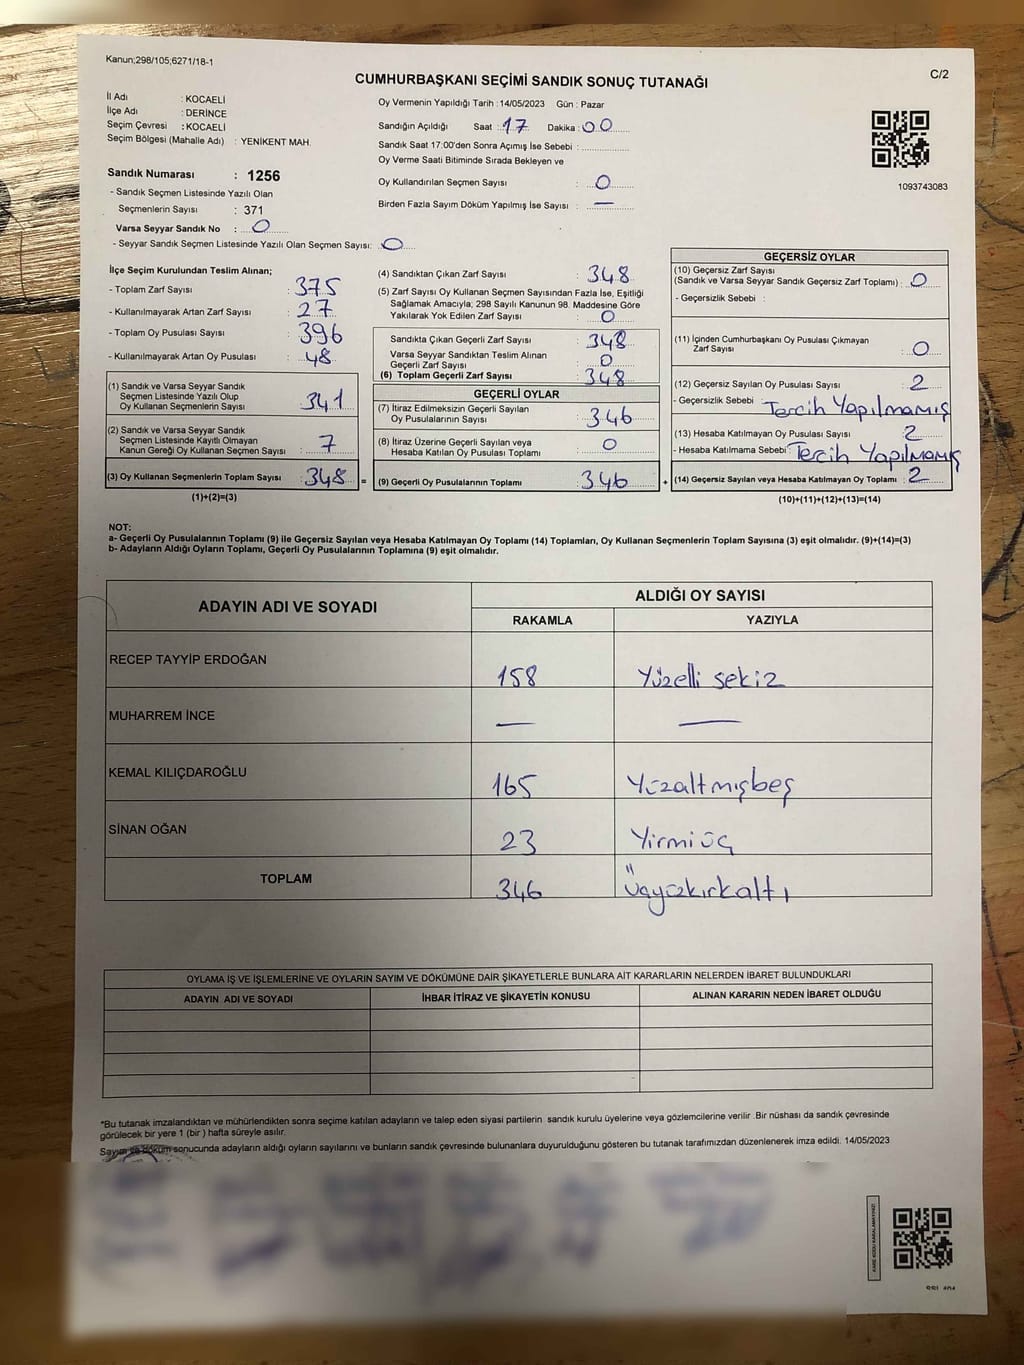 Kanun;298/105;6271/18-1
CUMHURBAŞKANI SEÇİMİ SANDIK SONUÇ TUTANAĞI
C/2
İl Adı : KOCAELİ
İlçe Adı : DERİNCE
Seçim Çevresi : KOCAELİ
Seçim Bölgesi (Mahalle Adı) : YENİKENT MAH.
Sandık Numarası : 1256
- Sandık Seçmen Listesinde Yazılı Olan
Seçmenlerin Sayısı : 371
Varsa Seyyar Sandık No : 0
- Seyyar Sandık Seçmen Listesinde Yazılı Olan Seçmen Sayısı: 0
Oy Vermenin Yapıldığı Tarih :14/05/2023 Gün : Pazar
Sandığın Açıldığı Saat : 17 Dakika : 00
Sandık Saat 17:00'den Sonra Açımış İse Sebebi :
Oy Verme Saati Bitiminde Sırada Bekleyen ve
Oy Kullandırılan Seçmen Sayısı : 0
Birden Fazla Sayım Döküm Yapılmış İse Sayısı : —
1093743083
İlçe Seçim Kurulundan Teslim Alınan;
- Toplam Zarf Sayısı : 375
- Kullanılmayarak Artan Zarf Sayısı : 27
- Toplam Oy Pusulası Sayısı : 396
- Kullanılmayarak Artan Oy Pusulası : 48
(1) Sandık ve Varsa Seyyar Sandık
Seçmen Listesinde Yazılı Olup
Oy Kullanan Seçmenlerin Sayısı : 341
(2) Sandık ve Varsa Seyyar Sandık
Seçmen Listesinde Kayıtlı Olmayan
Kanun Gereği Oy Kullanan Seçmen Sayısı : 7
(3) Oy Kullanan Seçmenlerin Toplam Sayısı : 348 =
(1)+(2)=(3)
(4) Sandıktan Çıkan Zarf Sayısı : 348
(5) Zarf Sayısı Oy Kullanan Seçmen Sayısından Fazla İse, Eşitliği
Sağlamak Amacıyla; 298 Sayılı Kanunun 98. Maddesine Göre
Yakılarak Yok Edilen Zarf Sayısı : 0
Sandıkta Çıkan Geçerli Zarf Sayısı : 348
Varsa Seyyar Sandıktan Teslim Alınan
Geçerli Zarf Sayısı : 0
(6) Toplam Geçerli Zarf Sayısı : 348
GEÇERLİ OYLAR
(7) İtiraz Edilmeksizin Geçerli Sayılan
Oy Pusulalarının Sayısı : 346
(8) İtiraz Üzerine Geçerli Sayılan veya
Hesaba Katılan Oy Pusulası Toplamı : 0
(9) Geçerli Oy Pusulalarının Toplamı : 346 +
GEÇERSİZ OYLAR
(10) Geçersiz Zarf Sayısı
(Sandık ve Varsa Seyyar Sandık Geçersiz Zarf Toplamı) : 0
- Geçersizlik Sebebi :
(11) İçinden Cumhurbaşkanı Oy Pusulası Çıkmayan
Zarf Sayısı : 0
(12) Geçersiz Sayılan Oy Pusulası Sayısı : 2
- Geçersizlik Sebebi : Tercih Yapılmamış
(13) Hesaba Katılmayan Oy Pusulası Sayısı : 2
- Hesaba Katılmama Sebebi : Tercih Yapılmamış
(14) Geçersiz Sayılan veya Hesaba Katılmayan Oy Toplamı : 2
(10)+(11)+(12)+(13)=(14)
NOT:
a- Geçerli Oy Pusulalarının Toplamı (9) ile Geçersiz Sayılan veya Hesaba Katılmayan Oy Toplamı (14) Toplamları, Oy Kullanan Seçmenlerin Toplam Sayısına (3) eşit olmalıdır. (9)+(14)=(3)
b- Adayların Aldığı Oyların Toplamı, Geçerli Oy Pusulalarının Toplamına (9) eşit olmalıdır.
ADAYIN ADI VE SOYADI
ALDIĞI OY SAYISI
RAKAMLA YAZIYLA
RECEP TAYYİP ERDOĞAN 158 Yüzelli sekiz
MUHARREM İNCE — —
KEMAL KILIÇDAROĞLU 165 Yüzaltmışbeş
SİNAN OĞAN 23 Yirmiüç
TOPLAM 346 Üçyüzkırkaltı
OYLAMA İŞ VE İŞLEMLERİNE VE OYLARIN SAYIM VE DÖKÜMÜNE DAİR ŞİKAYETLERLE BUNLARA AİT KARARLARIN NELERDEN İBARET BULUNDUKLARI
ADAYIN ADI VE SOYADI İHBAR İTİRAZ VE ŞİKAYETİN KONUSU ALINAN KARARIN NEDEN İBARET OLDUĞU
*Bu tutanak imzalandıktan ve mühürlendikten sonra seçime katılan adayların ve talep eden siyasi partilerin sandık kurulu üyelerine veya gözlemcilerine verilir .Bir nüshası da sandık çevresinde
görülecek bir yere 1 (bir ) hafta süreyle asılır.
Sayım ve döküm sonucunda adayların aldığı oyların sayılarını ve bunların sandık çevresinde bulunanlara duyurulduğunu gösteren bu tutanak tarafımızdan düzenlenerek imza edildi. 14/05/2023
KARE KODU KARALAMAYINIZ!